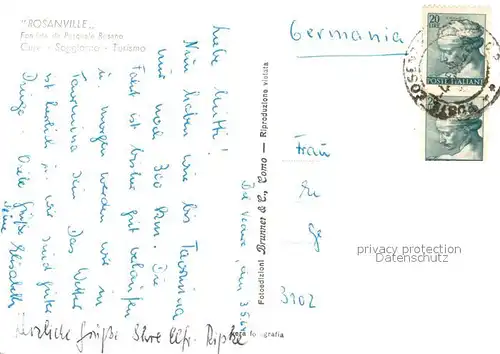 "ROSANVILLE"
Case - Soggiorno - Turismo
Germania
20
POSTE ITALIANE
Liebe Mutti!
Nun haben wir bis Taormina
nur noch 300 km. Die
Fahrt ist bisher gut verlaufen
u. morgen werden wir in
Taormina sein. Das Wetter
ist herrlich u. wir sind guter
Dinge. Viele Grüße
Deine Elisabeth
Herzliche Grüße Ihre
Fotoedizioni Brunner & C., Como — Riproduzione vietata
Vera fotografia
Frau
3102
privacy protection
Datenschutz